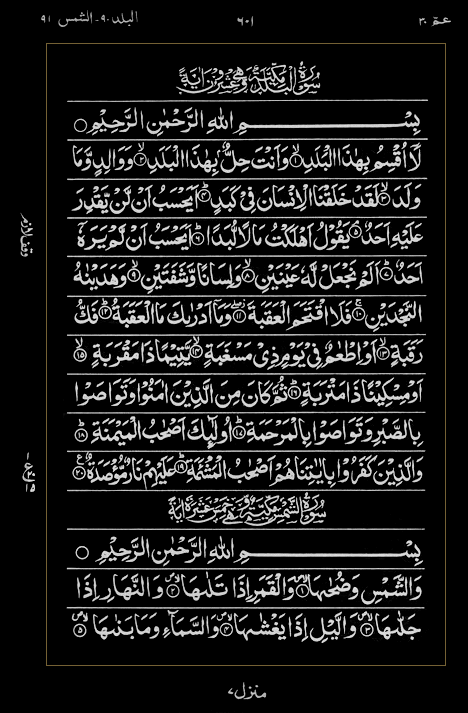 عمّ ٣٠ ٦٠١ البلد ٩٠-الشمس ٩١
سُوْرَةُ الْبَلَدِ مَكِّيَّةٌ وَّهِيَ عِشْرُوْنَ اٰيَةً
بِسْمِ اللّٰهِ الرَّحْمٰنِ الرَّحِيْمِ ○
لَاۤ اُقْسِمُ بِهٰذَا الْبَلَدِ ۙ۝١ وَاَنْتَ حِلٌّۢ بِهٰذَا الْبَلَدِ ۙ۝٢ وَوَالِدٍ وَّمَا
وَلَدَ ۙ۝٣ لَقَدْ خَلَقْنَا الْاِنْسَانَ فِيْ كَبَدٍ ؕ۝٤ اَيَحْسَبُ اَنْ لَّنْ يَّقْدِرَ
عَلَيْهِ اَحَدٌ ۘ۝٥ يَقُوْلُ اَهْلَكْتُ مَالًا لُّبَدًا ؕ۝٦ اَيَحْسَبُ اَنْ لَّمْ يَرَهٗۤ
اَحَدٌ ؕ۝٧ اَلَمْ نَجْعَلْ لَّهٗ عَيْنَيْنِ ۙ۝٨ وَلِسَانًا وَّشَفَتَيْنِ ۙ۝٩ وَهَدَيْنٰهُ
النَّجْدَيْنِ ۚ۝١٠ فَلَا اقْتَحَمَ الْعَقَبَةَ ؗۖ۝١١ وَمَاۤ اَدْرٰىكَ مَا الْعَقَبَةُ ؕ۝١٢ فَكُّ
رَقَبَةٍ ۙ۝١٣ اَوْ اِطْعٰمٌ فِيْ يَوْمٍ ذِيْ مَسْغَبَةٍ ۙ۝١٤ يَّتِيْمًا ذَا مَقْرَبَةٍ ۙ۝١٥
اَوْ مِسْكِيْنًا ذَا مَتْرَبَةٍ ؕ۝١٦ ثُمَّ كَانَ مِنَ الَّذِيْنَ اٰمَنُوْا وَتَوَاصَوْا
بِالصَّبْرِ وَتَوَاصَوْا بِالْمَرْحَمَةِ ؕ۝١٧ اُولٰٓئِكَ اَصْحٰبُ الْمَيْمَنَةِ ؕ۝١٨
وَالَّذِيْنَ كَفَرُوْا بِاٰيٰتِنَا هُمْ اَصْحٰبُ الْمَشْـَٔمَةِ ؕ۝١٩ عَلَيْهِمْ نَارٌ مُّؤْصَدَةٌ ۠۝٢٠
سُوْرَةُ الشَّمْسِ مَكِّيَّةٌ وَّهِيَ خَمْسَ عَشَرَةَ اٰيَةً
بِسْمِ اللّٰهِ الرَّحْمٰنِ الرَّحِيْمِ ○
وَالشَّمْسِ وَضُحٰىهَا ۪ۙ۝١ وَالْقَمَرِ اِذَا تَلٰىهَا ۪ۙ۝٢ وَالنَّهَارِ اِذَا
جَلّٰىهَا ۪ۙ۝٣ وَالَّيْلِ اِذَا يَغْشٰىهَا ۪ۙ۝٤ وَالسَّمَآءِ وَمَا بَنٰىهَا ۪ۙ۝٥
منزل ٧